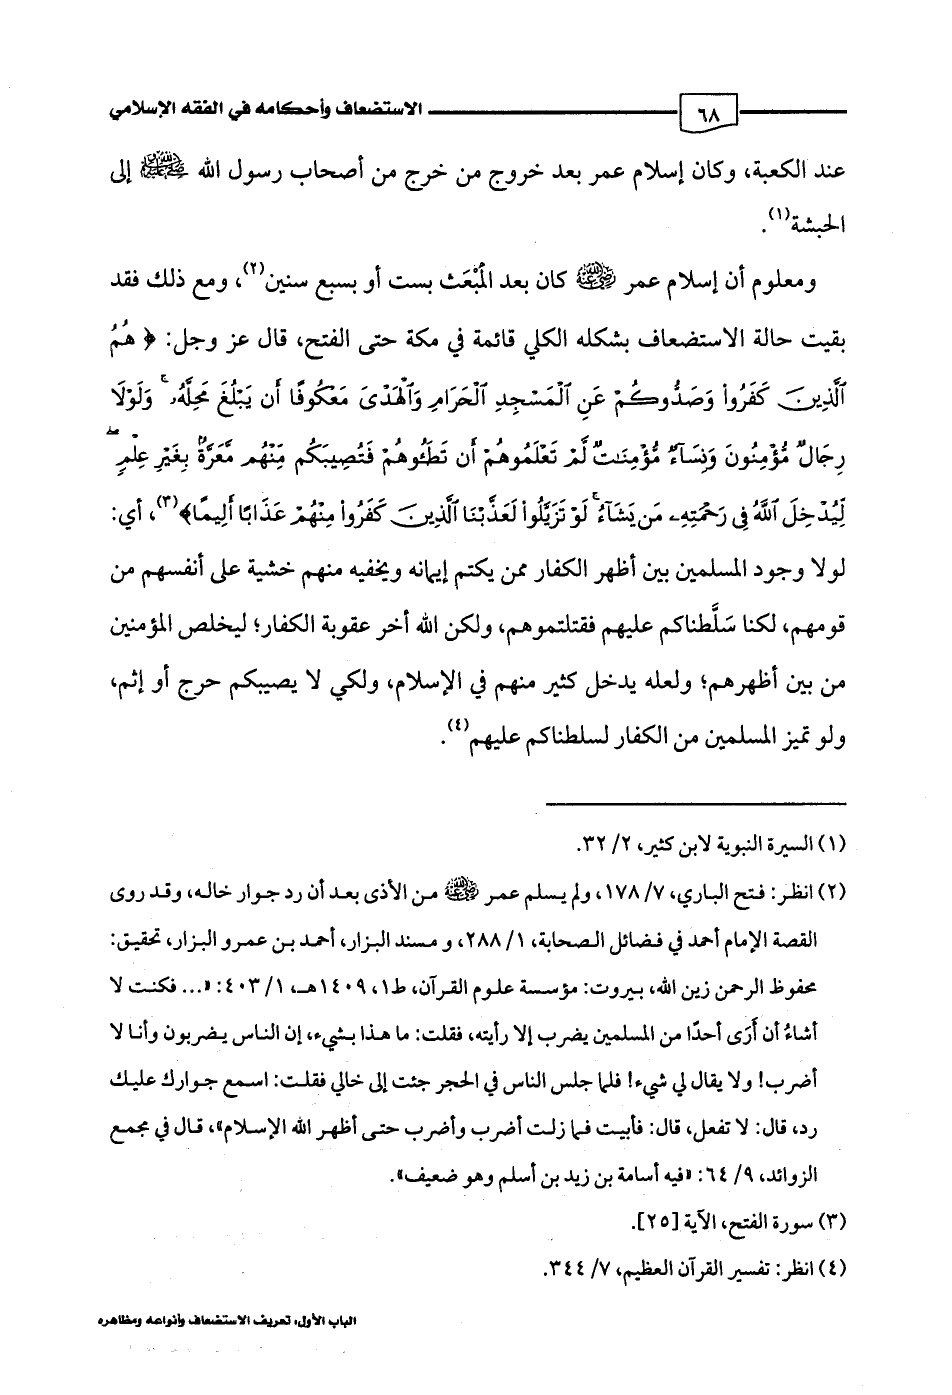 ٦٨ الاستضعاف وأحكامه في الفقه الإسلامي
عند الكعبة، وكان إسلام عمر بعد خروج من خرج من أصحاب رسول الله ﷺ إلى
الحبشة(١).
ومعلوم أن إسلام عمر رضي الله عنه كان بعد المُبْعَث بست أو بسبع سنين(٢)، ومع ذلك فقد
بقيت حالة الاستضعاف بشكله الكلي قائمة في مكة حتى الفتح، قال عز وجل: ﴿ هُمُ
ٱلَّذِينَ كَفَرُوا۟ وَصَدُّوكُمْ عَنِ ٱلْمَسْجِدِ ٱلْحَرَامِ وَٱلْهَدْىَ مَعْكُوفًا أَن يَبْلُغَ مَحِلَّهُۥ ۚ وَلَوْلَا
رِجَالٌ مُّؤْمِنُونَ وَنِسَآءٌ مُّؤْمِنَٰتٌ لَّمْ تَعْلَمُوهُمْ أَن تَطَـُٔوهُمْ فَتُصِيبَكُم مِّنْهُم مَّعَرَّةٌۢ بِغَيْرِ عِلْمٍ ۖ
لِّيُدْخِلَ ٱللَّهُ فِى رَحْمَتِهِۦ مَن يَشَآءُ ۚ لَوْ تَزَيَّلُوا۟ لَعَذَّبْنَا ٱلَّذِينَ كَفَرُوا۟ مِنْهُمْ عَذَابًا أَلِيمًا﴾(٣)، أي:
لولا وجود المسلمين بين أظهر الكفار ممن يكتم إيمانه ويخفيه منهم خشية على أنفسهم من
قومهم، لكنا سَلَّطناكم عليهم فقتلتموهم، ولكن الله أخر عقوبة الكفار؛ ليخلص المؤمنين
من بين أظهرهم؛ ولعله يدخل كثير منهم في الإسلام، ولكي لا يصيبكم حرج أو إثم،
ولو تميز المسلمين من الكفار لسلطناكم عليهم(٤).
(١) السيرة النبوية لابن كثير، ٢/ ٣٢.
(٢) انظر: فتح الباري، ٧/ ١٧٨، ولم يسلم عمر رضي الله عنه من الأذى بعد أن رد جوار خاله، وقد روى
القصة الإمام أحمد في فضائل الصحابة، ١/ ٢٨٨، و مسند البزار، أحمد بن عمرو البزار، تحقيق:
محفوظ الرحمن زين الله، بيروت: مؤسسة علوم القرآن، ط١، ١٤٠٩هـ، ١/ ٤٠٣: «... فكنت لا
أشاءُ أن أَرَى أحدًا من المسلمين يضرب إلا رأيته، فقلت: ما هذا بشيء، إن الناس يضربون وأنا لا
أضرب! ولا يقال لي شيء! فلما جلس الناس في الحجر جئت إلى خالي فقلت: اسمع جوارك عليك
رد، قال: لا تفعل، قال: فأبيت فما زلت أضرب وأضرب حتى أظهر الله الإسلام»، قال في مجمع
الزوائد، ٩/ ٦٤: «فيه أسامة بن زيد بن أسلم وهو ضعيف».
(٣) سورة الفتح، الآية [٢٥].
(٤) انظر: تفسير القرآن العظيم، ٧/ ٣٤٤.
الباب الأول: تعريف الاستضعاف وأنواعه ومظاهره